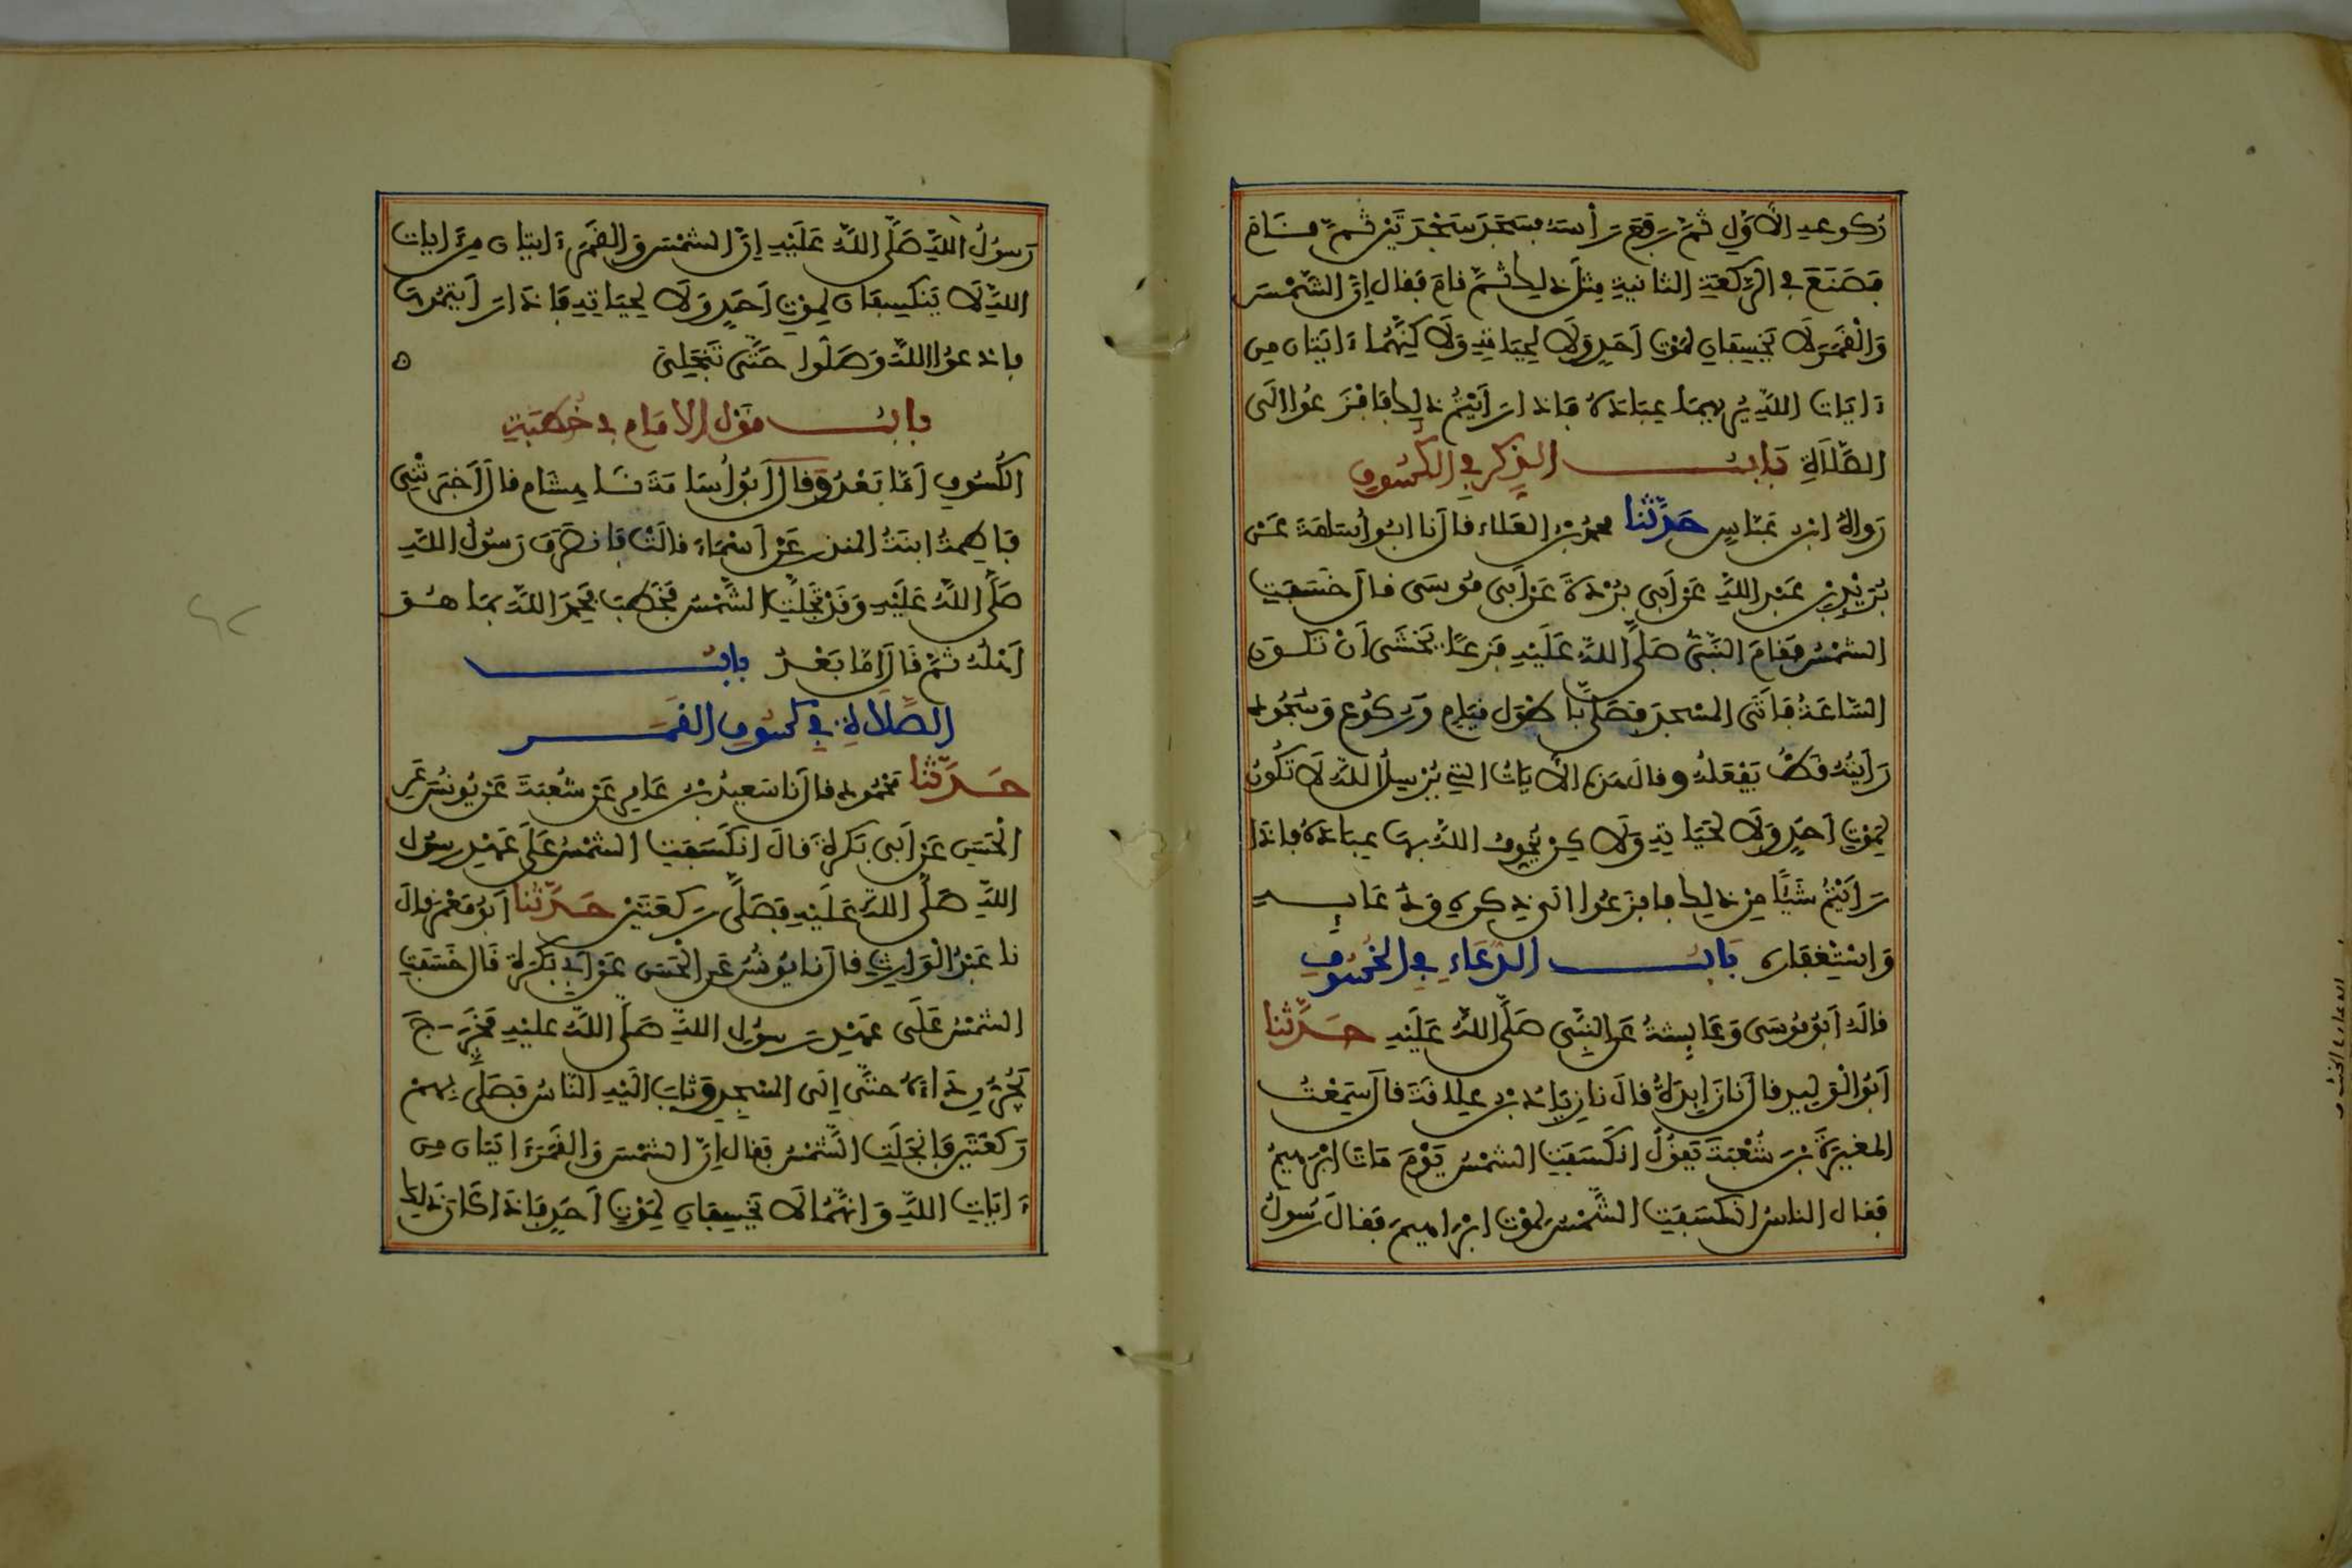 ركوعه الأَوَّلِ ثُمَّ رَفَعَ رَأْسَهُ فسَجَدَ سَجْدَتَيْنِ ثُمَّ قَامَ
فَصَنَعَ فِي الرَّكعَةِ الثانيةِ مِثْلَ ذلِكَ ثُمَّ قامَ فَقال إِنَّ الشَّمْسَ
وَالْقَمَرَ لَا يَخْسِفَانِ لِمَوْتِ أَحَدٍ وَلَا لِحَيَاتِهِ وَلَاكِنَّهُمَا ءَايَتَانِ مِن
ءَايَاتِ اللَّهِ يُرِيهِمَا عِبَادَهُ فَإِذَا رَأَيْتُمْ ذلِكَ فَافْزَعُوا الَى
الصَّلَاةِ بَابُ الذِكرِ فِي الكُسُوفِ
رَوَاهُ ابن عَبَّاسٍ حَدَّثَنَا محمدُ بْنُ العَلاء قالَ نا ابُو أُسَامَةَ عَنْ
بُرَيْدِ بْنِ عَبْدِ اللَّهِ عَنْ أَبِي بُرْدَةَ عَنْ أَبِي مُوسَى قالَ خَسَفَتِ
الشمْسُ فَقامَ النَّبِيُّ صَلَّى اللَّهُ عَلَيْهِ فَزِعًا يَخْشَى أَنْ تَكُونَ
السَّاعَةُ فَأَتَى المسْجدَ فَصَلَّى بِأَطْوَلِ قِيَامٍ وَرُكُوعٍ وَسُجُودٍ
رَأَيْتُهُ قَطُّ يَفْعَلُهُ وقالَ هَذِهِ الأَيَاتُ التِي يُرْسِلُ اللَّهُ لَا تَكُونُ
لِمَوْتِ أَحَدٍ وَلَا لِحَيَاتِهِ وَلَاكِنْ يُخَوِّفُ اللَّهُ بِهَا عِبَادَهُ فَإِذَا
رَأَيْتُمْ شَيْئًا مِنْ ذلِكَ فَافْزَعُوا الَى ذِكرِهِ وَدُعَائِهِ
وَاسْتِغْفَارِه بَابُ الدُّعَاءِ فِي الخُسُوفِ
قالَهُ أَبُو مُوسَى وَعَائِشةُ عَنِ النَّبِيِّ صَلَّى اللَّهُ عَلَيْهِ حَدَّثَنَا
أَبُو الْوَلِيدِ قالَ نا زَائِدَةُ قالَ نا زِيَادُ بْنُ عِلَاقَةَ قالَ سَمِعْتُ
المغيرَةَ بْنَ شُعْبَةَ يَقُولُ انكَسَفَتِ الشمْسُ يَوْمَ مَاتَ ابْرهِيمُ
فَقال الناسُ انْكَسَفَتِ الشَّمْسُ لِمَوْتِ ابْرَاهِيمَ فَقالَ رَسُولُ
رَسولُ اللَّهِ صَلَّى اللَّهُ عَلَيْهِ إِنَّ الشمْسَ وَالقَمَرَ ءَايتان مِنَ ءَايات
اللَّهِ لَا يَنْكَسِفَان لِمَوْتِ أَحَدٍ وَلَا لِحيَاتِهِ فَإِذَا رَأَيْتُمُوهَا
فادعوا اللَّهَ وَصَلُّوا حَتَّى تَنْجَلِيَ ٥
بابُ قَوْل الامَام فِي خُطْبَةِ
الكُسُوفِ أَمَّا بَعْدُ وَقالَ أَبُو أُسَامَةَ نَا هِشَام قالَ أَخْبَرَتْنِي
فَاطِمةُ ابنَةُ المنذرِ عَنْ أَسْمَاءَ قالَتْ فَانصَرَفَ رَسُولُ اللَّهِ
صَلَّى اللَّهُ عَلَيْهِ وَقَدْ تَجَلَّتِ الشَّمْسُ فَخَطَبَ فَحَمِدَ اللَّهَ بِمَا هُوَ
أَهْلُهُ ثُمَّ قَالَ أَمَّا بَعْدُ بابُ
الصَّلاةِ فِي كُسُوفِ القَمَرِ
حَدَّثَنَا مَحْمُود قالَ نا سَعِيدُ بْنُ عَامِرٍ عَنْ شُعْبَةَ عَنْ يُونُسَ عَنِ
الْحَسَنِ عَنْ أَبِي بَكرَةَ قالَ انكَسَفَتِ الشمْسُ عَلَى عَهْدِ رسول
اللَّهِ صَلَّى اللَّهُ عَلَيْهِ فَصَلَّى رَكعَتَيْنِ حَدَّثَنَا أَبُو مَعْمَرٍ قالَ
نا عَبْدُ الْوَارِثِ قالَ نا يُونُسُ عَنِ الْحَسَنِ عَنْ أَبِي بَكرَةَ قَال خَسَفَتِ
الشمْسُ عَلَى عَهْدِ رَسُولِ اللَّهِ صَلَّى اللَّهُ عليْهِ فَخَرَجَ
يَجُرُّ رِدَاءَهُ حتَّى إِلَى المسْجِدِ وَثَابَ الَيْهِ النَّاسُ فَصَلَّى بِهِمْ
رَكعَتَيْنِ فَانْجَلَتِ الشَّمْسُ فَقال إِنَّ الشمْسَ وَالقَمَرَ ءَايَتَان مِن
ءَايَاتِ اللَّهِ وَانَّهُمَا لَا يَخْسِفَانِ لِمَوْتِ أَحَدٍ فَإِذَا كَانَ ذلِكَ